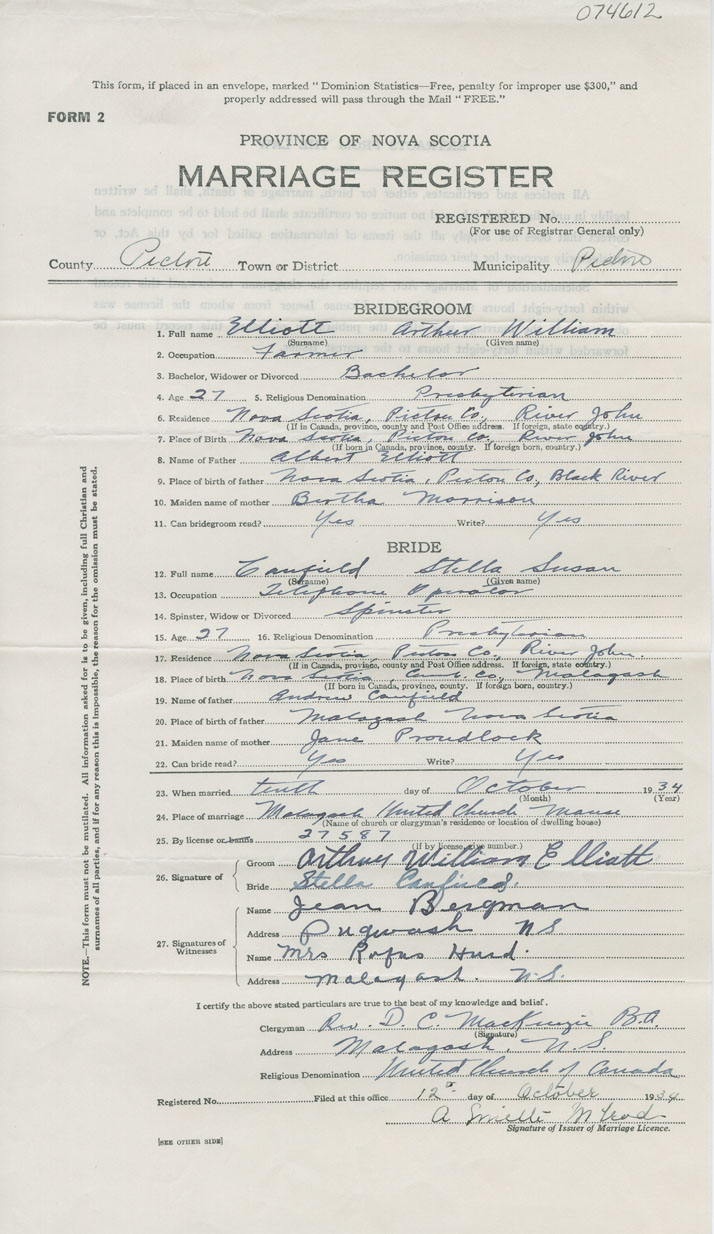 074612
This form, if placed in an envelope, marked "Dominion Statistics—Free, penalty for improper use $300," and
properly addressed will pass through the Mail "FREE."
FORM 2
PROVINCE OF NOVA SCOTIA
MARRIAGE REGISTER
REGISTERED No.
(For use of Registrar General only)
County Pictou Town or District Municipality Pictou
BRIDEGROOM
1. Full name Elliott Arthur William
(Surname) (Given name)
2. Occupation Farmer
3. Bachelor, Widower or Divorced Bachelor
4. Age 27 5. Religious Denomination Presbyterian
6. Residence Nova Scotia, Pictou Co, River John
(If in Canada, province, county and Post Office address. If foreign, state country.)
7. Place of Birth Nova Scotia, Pictou Co, River John
(If born in Canada, province, county. If foreign born, country.)
8. Name of Father Albert Elliott
9. Place of birth of father Nova Scotia, Pictou Co, Black River
10. Maiden name of mother Bertha Morrison
11. Can bridegroom read? Yes Write? Yes
BRIDE
12. Full name Canfield Stella Susan
(Surname) (Given name)
13. Occupation Telephone Operator
14. Spinster, Widow or Divorced Spinster
15. Age 27 16. Religious Denomination Presbyterian
17. Residence Nova Scotia, Pictou Co, River John.
(If in Canada, province, county and Post Office address. If foreign, state country.)
18. Place of birth Nova Scotia, Cumb. Co, Malagash
(If born in Canada, province, county. If foreign born, country.)
19. Name of father Andrew Canfield
20. Place of birth of father Malagash Nova Scotia
21. Maiden name of mother Jane Proudlock
22. Can bride read? Yes Write? Yes
23. When married tenth day of October 1934
(Month) (Year)
24. Place of marriage Malagash United Church Manse
(Name of church or clergyman's residence or location of dwelling house)
25. By license or banns 27587
(If by license, give number.)
26. Signature of
Groom Arthur William Elliott
Bride Stella Canfield.
27. Signatures of Witnesses
Name Jean Bergman
Address Pugwash NS
Name Mrs Rufus Hurd.
Address Malagash. N.S.
I certify the above stated particulars are true to the best of my knowledge and belief.
Clergyman Rev. D. C. MacKenzie B.A.
(Signature)
Address Malagash, N.S.
Religious Denomination United Church of Canada
Registered No. Filed at this office 12 day of October 1934
A McLeod
Signature of Issuer of Marriage Licence.
[SEE OTHER SIDE]
NOTE.—This form must not be mutilated. All information asked for is to be given, including full Christian and
surnames of all parties, and if for any reason this is impossible, the reason for the omission must be stated.